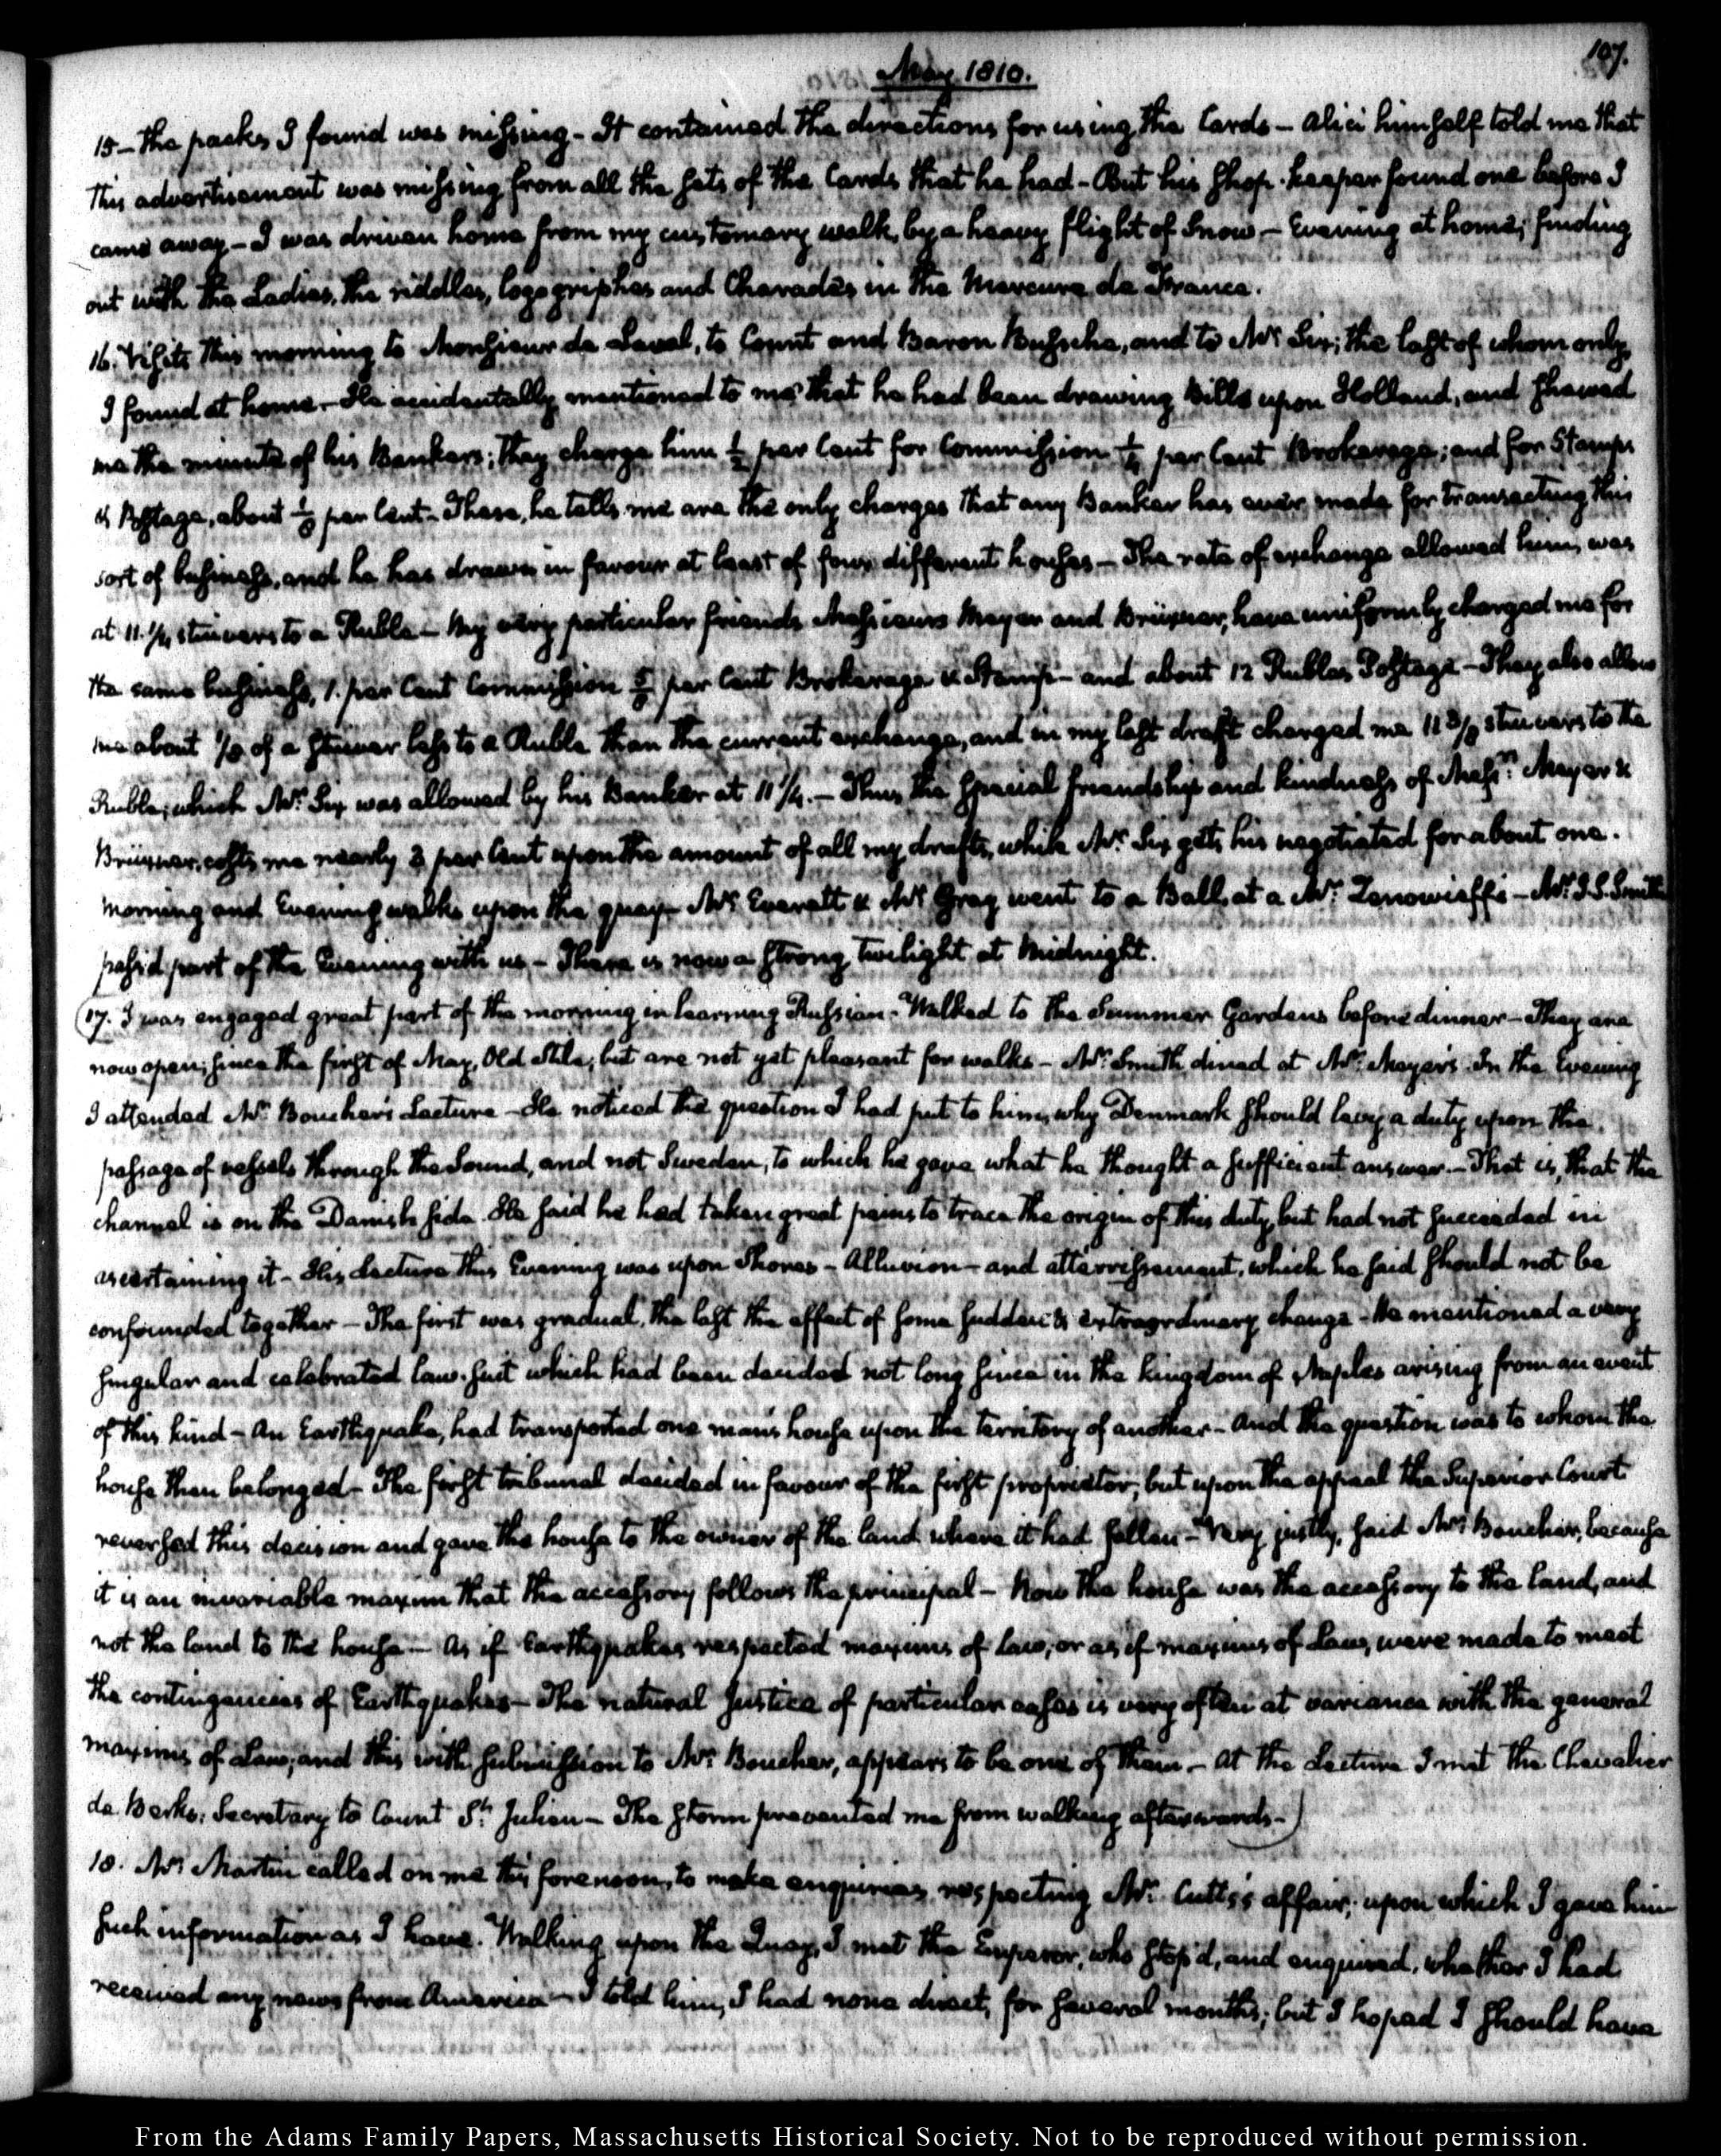 107.
May 1810.
15 — the packs I found was missing — It contained the directions for using the Cards — Alici himself told me that
this advertisement was missing from all the sets of the Cards that he had — But his Shop-keeper found one before I
came away — I was driven home from my customary walk, by a heavy flight of Snow — Evening at home; finding
out with the Ladies, the riddles, logogriphes and Charades in the Mercure de France.
16. Visits this morning to Monsieur de Laval, to Count and Baron Bussche, and to Mr. Six; the last of whom only,
I found at home — He accidentally mentioned to me that he had been drawing bills upon Holland, and shewed
me the minute of his Bankers; they charge him ½ per Cent for Commission ¼ per Cent Brokerage; and for Stamps
& Postage, about ⅛ per Cent — These, he tells me are the only charges that any Banker has ever made for transacting this
sort of business, and he has drawn in favour at least of four different houses — The rate of exchange allowed him, was
at 11.¼ stuivers to a Ruble — My very particular friends Messieurs Meyer and Brüxner, have uniformly charged me for
the same business, 1. per Cent Commission ⅝ per Cent Brokerage & Stamps — and about 12 Rubles Postage — They also allow
me about ⅛ of a stuiver less to a Ruble than the current exchange, and in my last draft charged me 11 3/8 stuivers to the
Ruble; which Mr. Six was allowed by his Banker at 11 ¼. — Thus the special friendship and kindness of Messrs. Meyer &
Brüxner, costs me nearly 3 per Cent upon the amount of all my drafts, while Mr. Six gets his negotiated for about one.
Morning and Evening walks upon the quay — Mr. Everett & Mr. Gray went to a Ball, at a Mr. — Mr. J. S. Smith
pass'd part of the Evening with us, — There is now a strong twilight at Midnight.
(17. I was engaged great part of the morning in learning Russian — Walked to the Summer Gardens before dinner — They are
now open; since the first of May, Old Stile; but are not yet pleasant for walks — Mr. Smith dined at Mr. Meyer's. In the Evening
I attended Mr. Boucher's Lecture — He noticed the question I had put to him, why Denmark should levy a duty upon the
passage of vessels through the Sound, and not Sweden, to which he gave what he thought a sufficient answer — That is, that the
channel is on the Danish side. He said he had taken great pains to trace the origin of this duty, but had not succeeded in
ascertaining it — His Lecture this Evening was upon Shores — Alluvion — and atterrissement, which he said should not be
confounded together — The first was gradual, the last the effect of some sudden & extraordinary change — He mentioned a very
singular and celebrated law-suit which had been decided not long since in the kingdom of Naples arising from an event
of this kind — An Earthquake, had transported one man's house upon the territory of another — And the question was to whom the
house then belonged — The first tribunal decided in favour of the first proprietor; but upon the appeal the Superior Court
reversed this decision and gave the house to the owner of the land where it had fallen — Very justly, said Mr. Boucher, because
it is an invariable maxim that the accessory follows the principal — Now the house was the accessory to the land, and
not the land to the house — As if Earthquakes respected maxims of law, or as if maxims of Law, were made to meet
the contingencies of Earthquakes — The natural justice of particular cases is very often at variance with the general
maxims of Law, and this with submission to Mr. Boucher, appears to be one of them — At the Lecture I met the Chevalier
de Berks. Secretary to Count St. Julien — The storm prevented me from walking afterwards —)
18. Mr. Martin called on me this forenoon, to make enquiries respecting Mr. Cutts's affair; upon which I gave him
such information as I have. Walking upon the Quay, I met the Emperor, who stop'd, and enquired, whether I had
received any news from America — I told him, I had none direct, for several months; but I hoped I should have
From the Adams Family Papers, Massachusetts Historical Society. Not to be reproduced without permission.